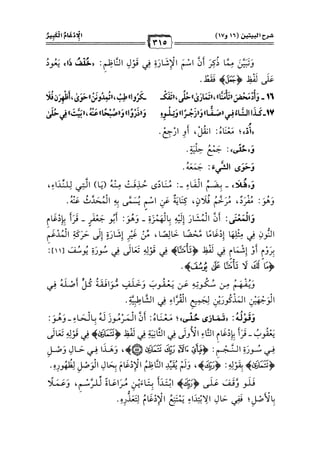 الْإِدْغَامُ الْكَبِيرُ
٣١٥
شرح البيتين (١٦ و١٧)
وَيَتَبَيَّنُ مِمَّا ذُكِرَ أَنَّ اسْمَ الْإِشَارَةِ فِي قَوْلِ النَّاظِمِ: «خُلْفُ ذَا» يَعُودُ
عَلَى لَفْظِ ﴿جَعَلَ﴾ فَقَطْ.
١٦ -
١٧ -
«أُبْ»: مَعْنَاهُ: انْقُلْ، أَوِ ارْجِعْ.
وَ«حُلَى»: جَمْعُ حِلْيَةٍ.
وَحَوَى الشَّيْءَ: جَمَعَهُ.
وَ«فُلَا» - بِضَمِّ الْفَاءِ -: مُنَادًى حُذِفَتْ مِنْهُ (يَا) الَّتِي لِلنِّدَاءِ،
وَهُوَ: مُفْرَدٌ، مُرَخَّمُ فُلَانٍ، كِنَايَةٌ عَنِ اسْمٍ يُسَمَّى بِهِ الْمُحَدَّثُ عَنْهُ.
وَالْمَعْنَى: أَنَّ الْمُشَارَ إِلَيْهِ بِالْهَمْزَةِ - وَهُوَ: أَبُو جَعْفَرٍ - قَرَأَ بِإِدْغَامِ
النُّونِ فِي مِثْلِهَا إِدْغَامًا مَحْضًا خَالِصًا، مِنْ غَيْرِ إِشَارَةٍ إِلَى حَرَكَةِ الْمُدْغَمِ
بِرَوْمٍ أَوْ إِشْمَامٍ فِي لَفْظِ ﴿تَأْمَنَّا﴾ فِي قَوْلِهِ تَعَالَى فِي سُورَةِ يُوسُفَ [١١]:
﴿مَا لَكَ لَا تَأْمَنَّا عَلَى يُوسُفَ﴾.
وَيُفْهَمُ مِنْ سُكُوتِهِ عَنْ يَعْقُوبَ وَخَلَفٍ مُوَافَقَةُ كُلٍّ أَصْلَهُ فِي
الْوَجْهَيْنِ الْمَذْكُورَيْنِ لِجَمِيعِ الْقُرَّاءِ فِي الشَّاطِبِيَّةِ.
وَقَوْلُهُ: «تَمَارَى حُلَى»: مَعْنَاهُ: أَنَّ الْمَرْمُوزَ لَهُ بِالْحَاءِ - وَهُوَ:
يَعْقُوبُ - قَرَأَ بِإِدْغَامِ التَّاءِ الْأُولَى فِي الثَّانِيَةِ فِي لَفْظِ ﴿تَتَمَارَى﴾ فِي قَوْلِهِ تَعَالَى
فِي سُورَةِ النَّجْمِ: ﴿فَبِأَيِّ آلَاءِ رَبِّكَ تَتَمَارَى﴾، وَهَذَا فِي حَالِ وَصْلِ
﴿تَتَمَارَى﴾ بِقَوْلِهِ: ﴿رَبِّكَ﴾، وَلَمْ يُقَيِّدِ النَّاظِمُ الْإِدْغَامَ بِحَالِ الْوَصْلِ لِظُهُورِهِ.
فَلَوْ وَقَفَ عَلَى ﴿رَبِّكَ﴾ ابْتَدَأَ بِتَاءَيْنِ مُرَاعَاةً لِلرَّسْمِ، وَعَمَلًا
بِالْأَصْلِ؛ فَفِي حَالِ الِابْتِدَاءِ يَمْتَنِعُ الْإِدْغَامُ لِتَعَذُّرِهِ.